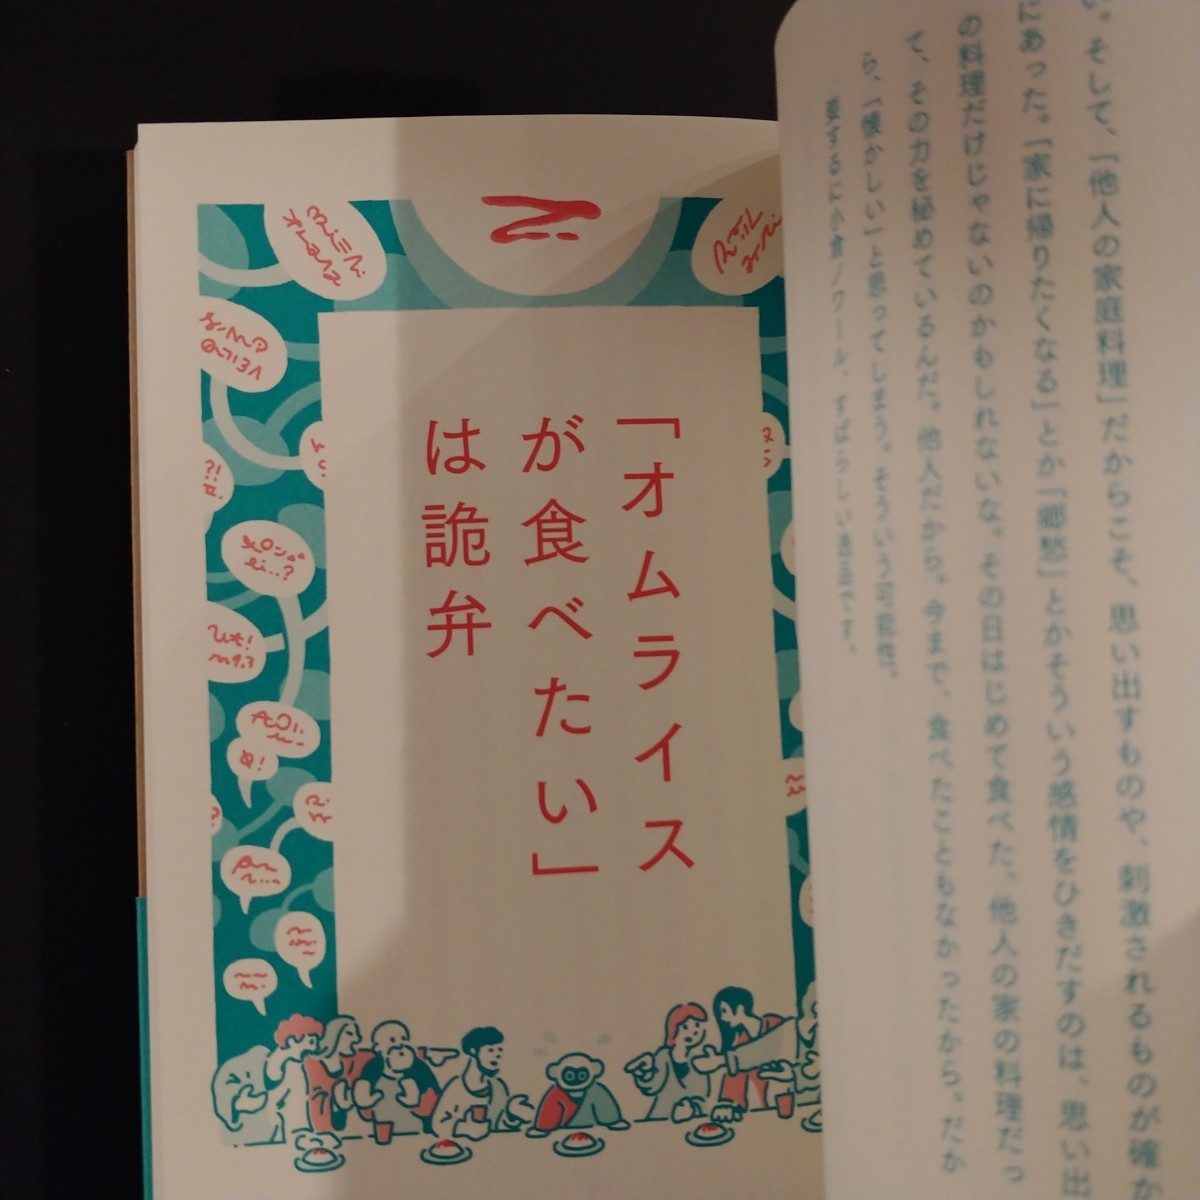 い。そして、「他人の家庭料理」だからこそ、思い出すものや、刺激されるものが確か
にあった。「家に帰りたくなる」とか「郷愁」とかそういう感情をひきだすのは、思い出
の料理だけじゃないのかもしれないな。その日はじめて食べた、他人の家の料理だっ
て、その力を秘めているんだ。他人だから。今まで、食べたこともなかったから。だか
ら、「懐かしい」と思ってしまう。そういう可能性。
要するに小倉ノワール、すばらしい逸品です。
「オムライス
が食べたい」
は詭弁